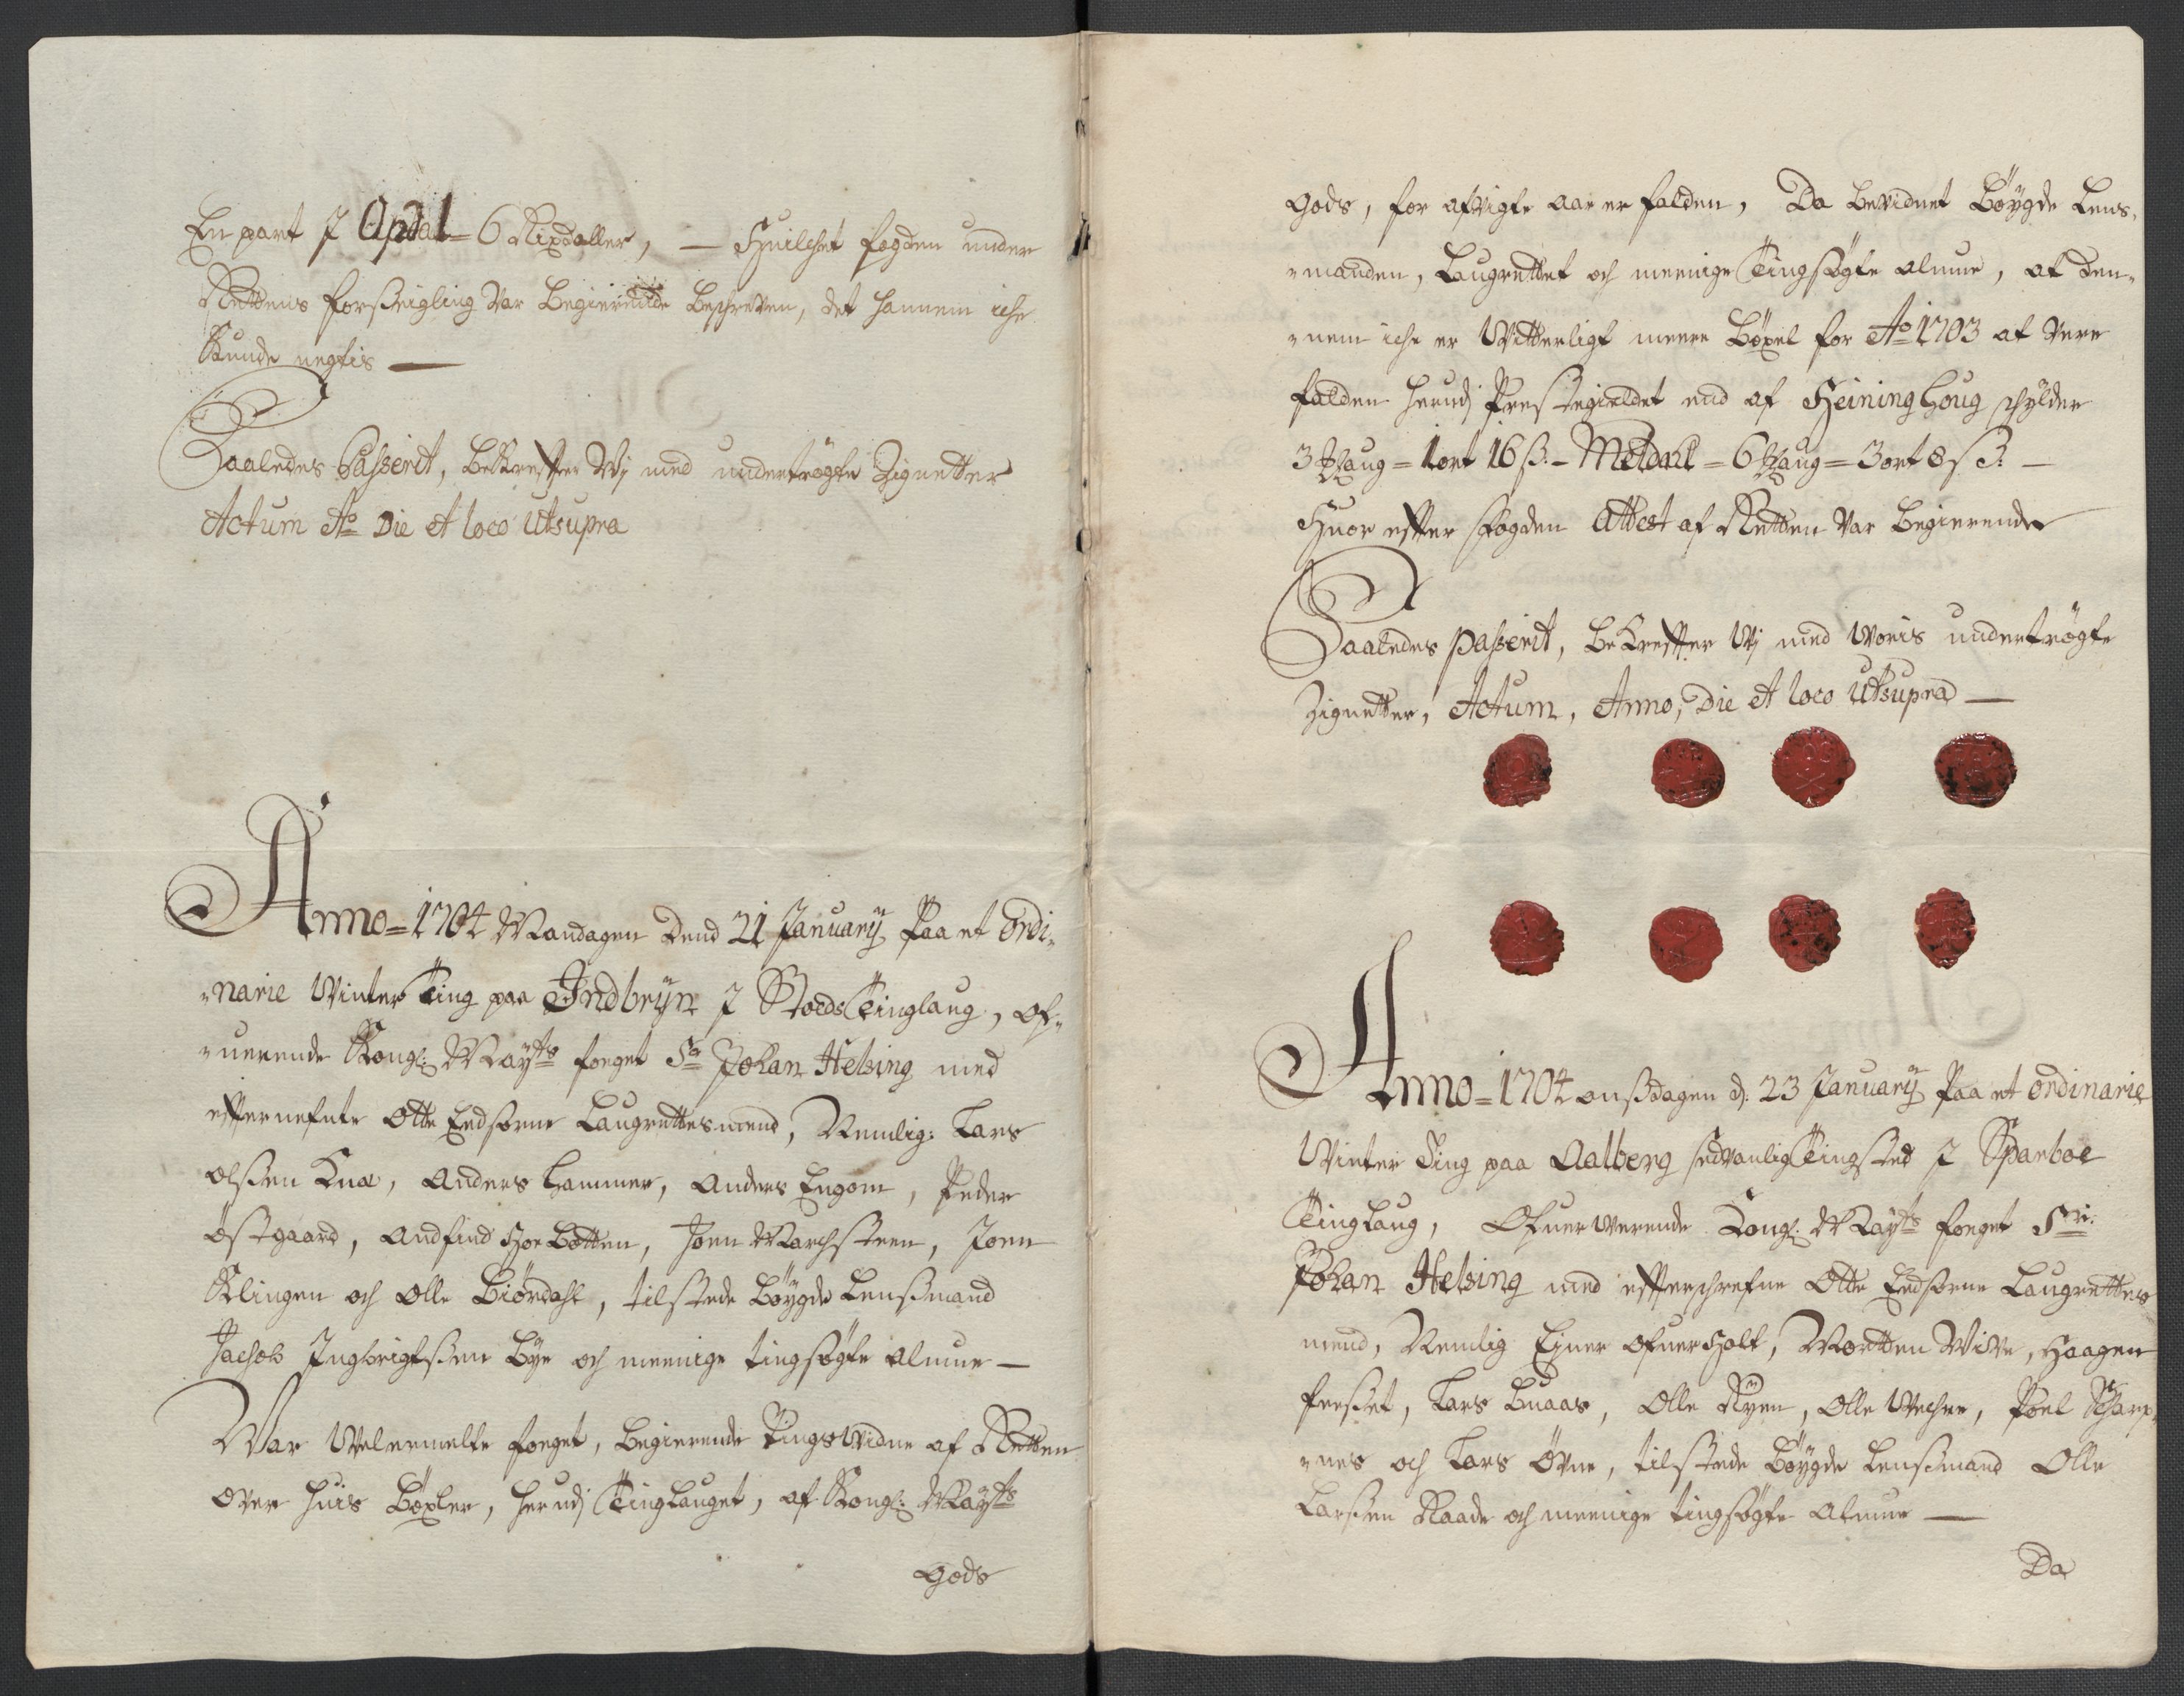 En part J Opdal = 6 Rixdaller, — Huilchet fogden under
Rettens forßeigling Var begierende beschreven, det hannem iche
Kunde negtis —
Saaledes Passerit, bekreffter Wj med undertrögte Zignetter
Actum Ao Die et loco Utsupra
Anno = 1704 Mandagen dend 21 Januarij Paa et ordi-
narie Winter Ting paa Indbrijn J Stods Tinglaug, of-
uerende Kongl: Mayts foeget Sr Johan Helsing med
effternefnte otte Eedsorne Laugrettesmend, Nemlig: Lars
olßen Qua, Anders hammer, Anders Engom, Peder
östgaard, Andfind Hoebotten, Joen Marchsteen, Joen
Klingen och olle Biördahl, tilstede böygde Lenßmand
Jachob Ingbrigtßen bye och meenige tingsögte almue —
War Welermelte foeget, begierende Tingswidne af Retten
over huis böxler, herudj Tinglauget, af Kongl: Mayts
Gods
Gods, for afvigte aar er falden, Da bevidnet böygde Lens-
manden, Laugrettet och meenige Tingsögte almue, at den-
nem iche er Witterligt meere böxel for Ao 1703 at Vere
falden herudj Prestegieldet end af Heininghoug schylder
3 Maug = 1 ort 16 ß: – Meldahl = 6 Maug = 3 ort 8 ß: —
Huor effter fogden Attest af Retten Var begierende
Saaledes passerit, bekreffter Wj med Woris undertrögte
Zignetter, Actum, Anno, Die et loco Utsupra —
Anno = 1704 onßdagen d: 23 Januarij Paa et ordinarie
Winter Ting paa Aalberg sedvanlig Tingsted J Sparboe
Tinglaug, Ofuerwerende Kongl: Mayts foeget Sr:
Johan Helsing med effterschrefne Otte Eedsorne Laugrettes
mend, Nemlig Ejner ofuerholt, Mortten Wiste, Haagen
freßet, Lars buaas, Olle Ryen, Olle Wechre, Poel Scharp-
nes och Lars övne, tilstede böygde lensßmand Olle
Larßen Raade och meenige tingsögte almue —
Da